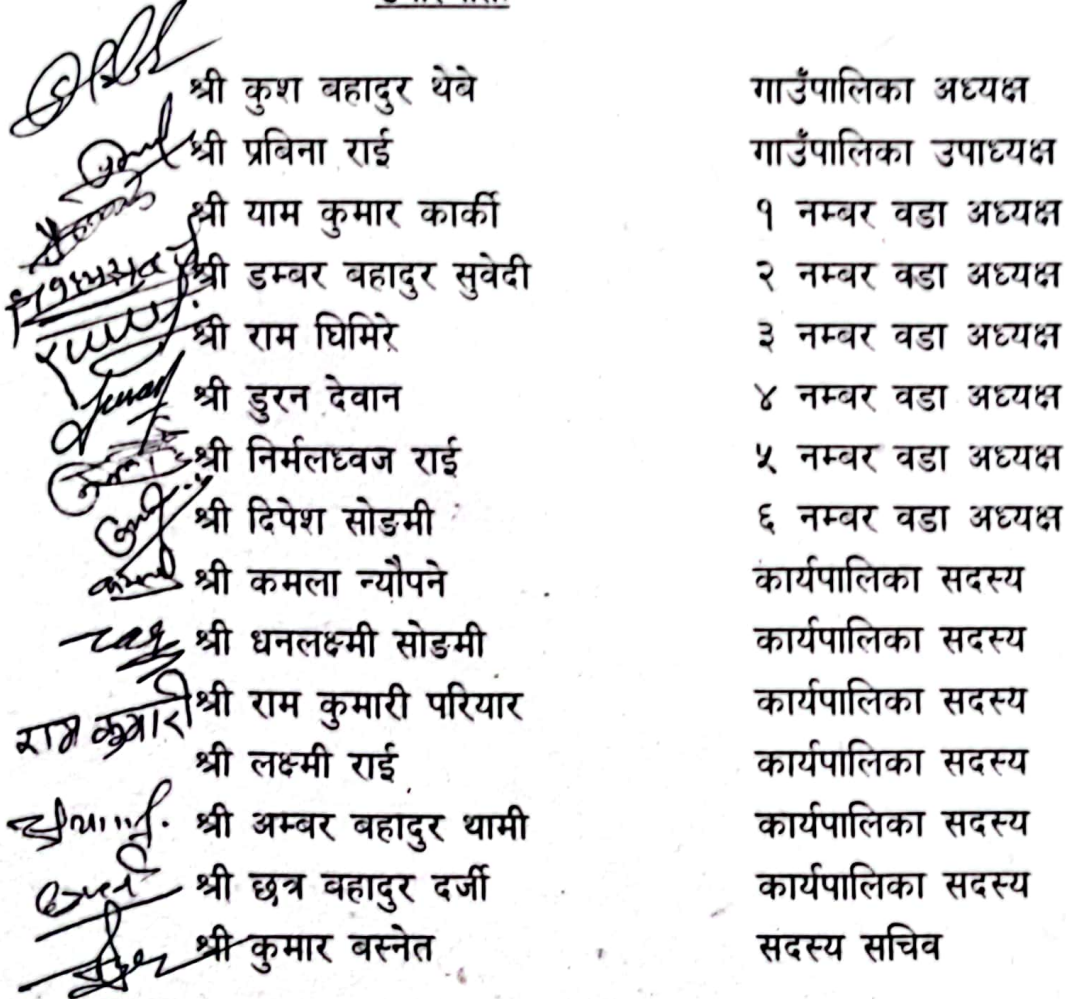 श्री कुश बहादुर थेबे गाउँपालिका अध्यक्ष
श्री प्रबिना राई गाउँपालिका उपाध्यक्ष
श्री याम कुमार कार्की १ नम्बर वडा अध्यक्ष
श्री डम्बर बहादुर सुवेदी २ नम्बर वडा अध्यक्ष
श्री राम घिमिरे ३ नम्बर वडा अध्यक्ष
श्री डुरन देवान ४ नम्बर वडा अध्यक्ष
श्री निर्मलध्वज राई ५ नम्बर वडा अध्यक्ष
श्री दिपेश सोङमी ६ नम्बर वडा अध्यक्ष
श्री कमला न्यौपने कार्यपालिका सदस्य
श्री धनलक्ष्मी सोङमी कार्यपालिका सदस्य
राम कुमारी श्री राम कुमारी परियार कार्यपालिका सदस्य
श्री लक्ष्मी राई कार्यपालिका सदस्य
श्री अम्बर बहादुर थामी कार्यपालिका सदस्य
श्री छत्र बहादुर दर्जी कार्यपालिका सदस्य
श्री कुमार बस्नेत सदस्य सचिव